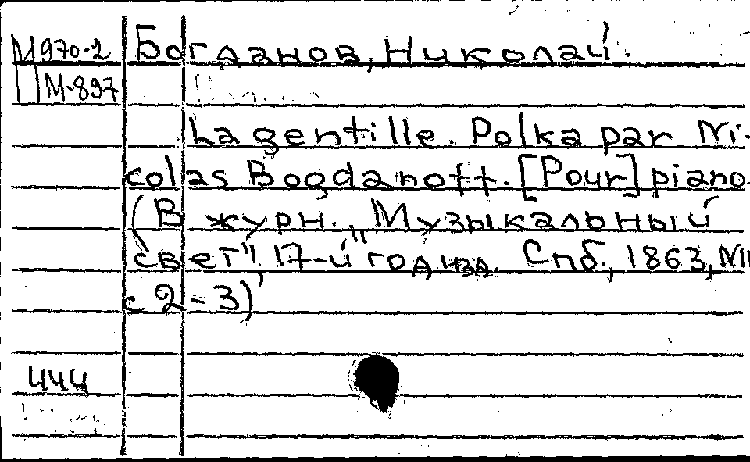 М970-2 Богданов, Николай.
П М-897
La gentille. Polka par Ni-
colas Bogdanoff. [Pour] piano
(В журн. „Музыкальный
свет", 17-й год изд. Спб., 1863, №11
с 2-3)
444